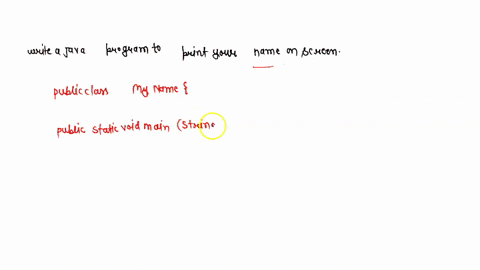 write a java program to print your name on screen.
public class My Name {
public static void main (String